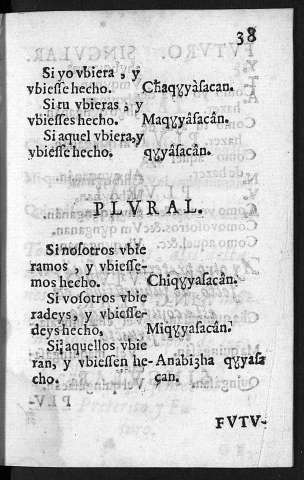 38
Si yo vbiera, y
vbiesse hecho. Chaqɣyàsacan.
Si tu vbieras, y
vbiesses hecho. Maqɣyâsacân.
Si aquel vbiera, y
vbiesse hecho. qɣyâsacân.
PLVRAL.
Si nosotros vbie
ramos, y vbiesse-
mos hecho. Chiqɣyasacan.
Si vosotros vbie
radeys, y vbiesse-
deys hecho, Miqɣyasacân.
Si aquellos vbie
ran, y vbiessen he- Anabiɜha qɣyasa
cho. çan.
FVTV-